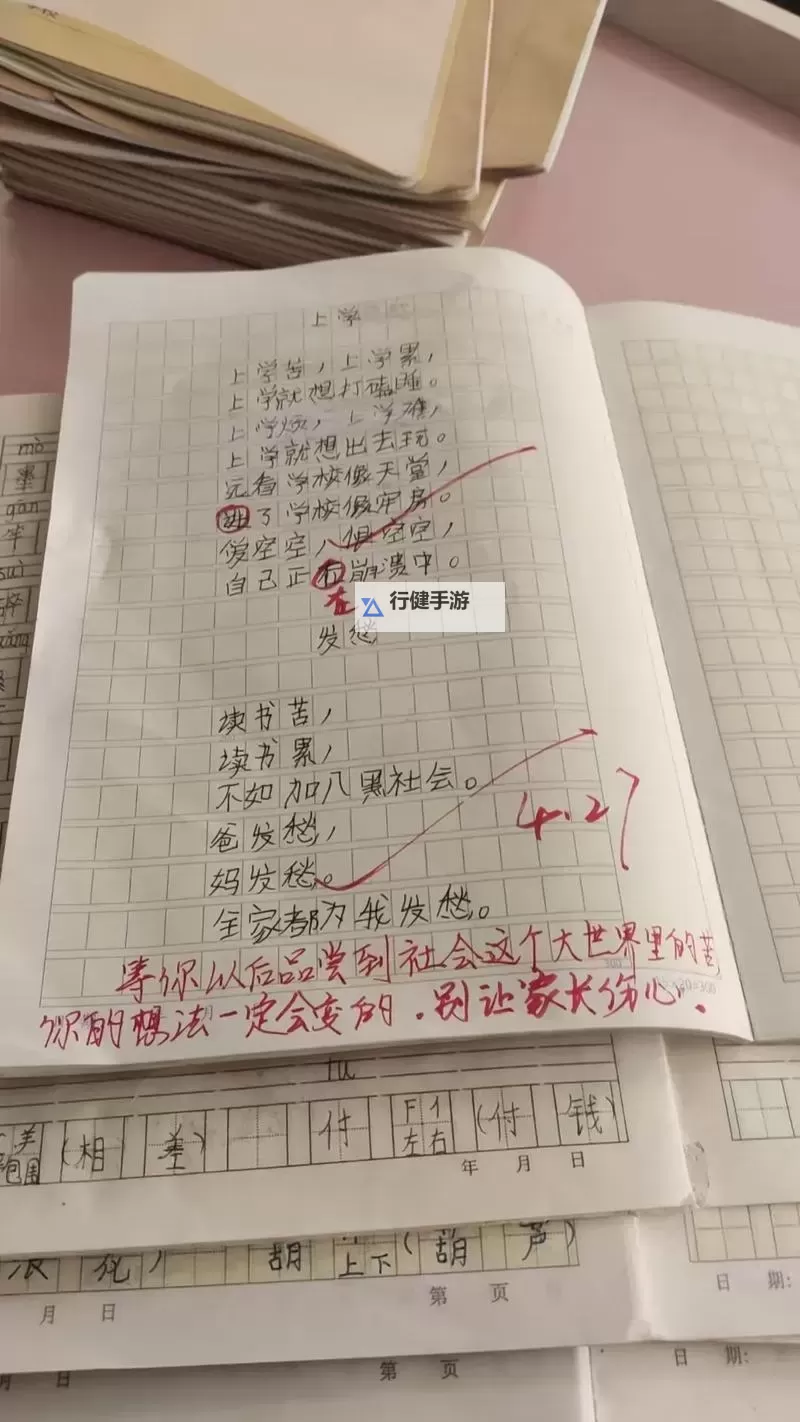 上学
上学苦，上学累，
上学就想打瞌睡。
上学烦，上学难，
上学就想出去玩。
远看学校像天堂，
了学校像牢房。
俱空空，
自己正 崩溃中。
在
行健手游
发愁
读书苦，
读书累，
不如加入黑社会。
爸发愁，
妈发愁。
全家都为我发愁。
4.27
等你以后品尝到社会这个大世界里的苦，
你的想法一定会变的．别让家长伤心．
300
20=300
mò
墨
gān
竿
suì
fù
羊
包围
（相 差）
付
左右
（付 钱）
年 月 日
浪 花）
胡
上下
（葫 芦）
月 日
第 页
日 期:
月 日
第 页
日 期: